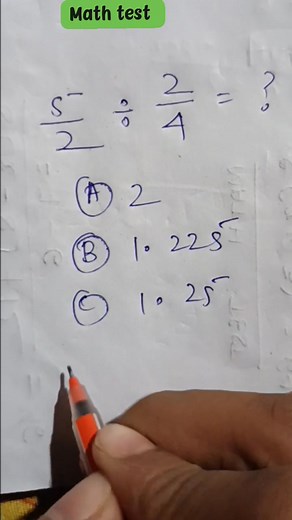 Math test
5/2 ÷ 2/4 = ?
A 2
B 1.225
C 1.25